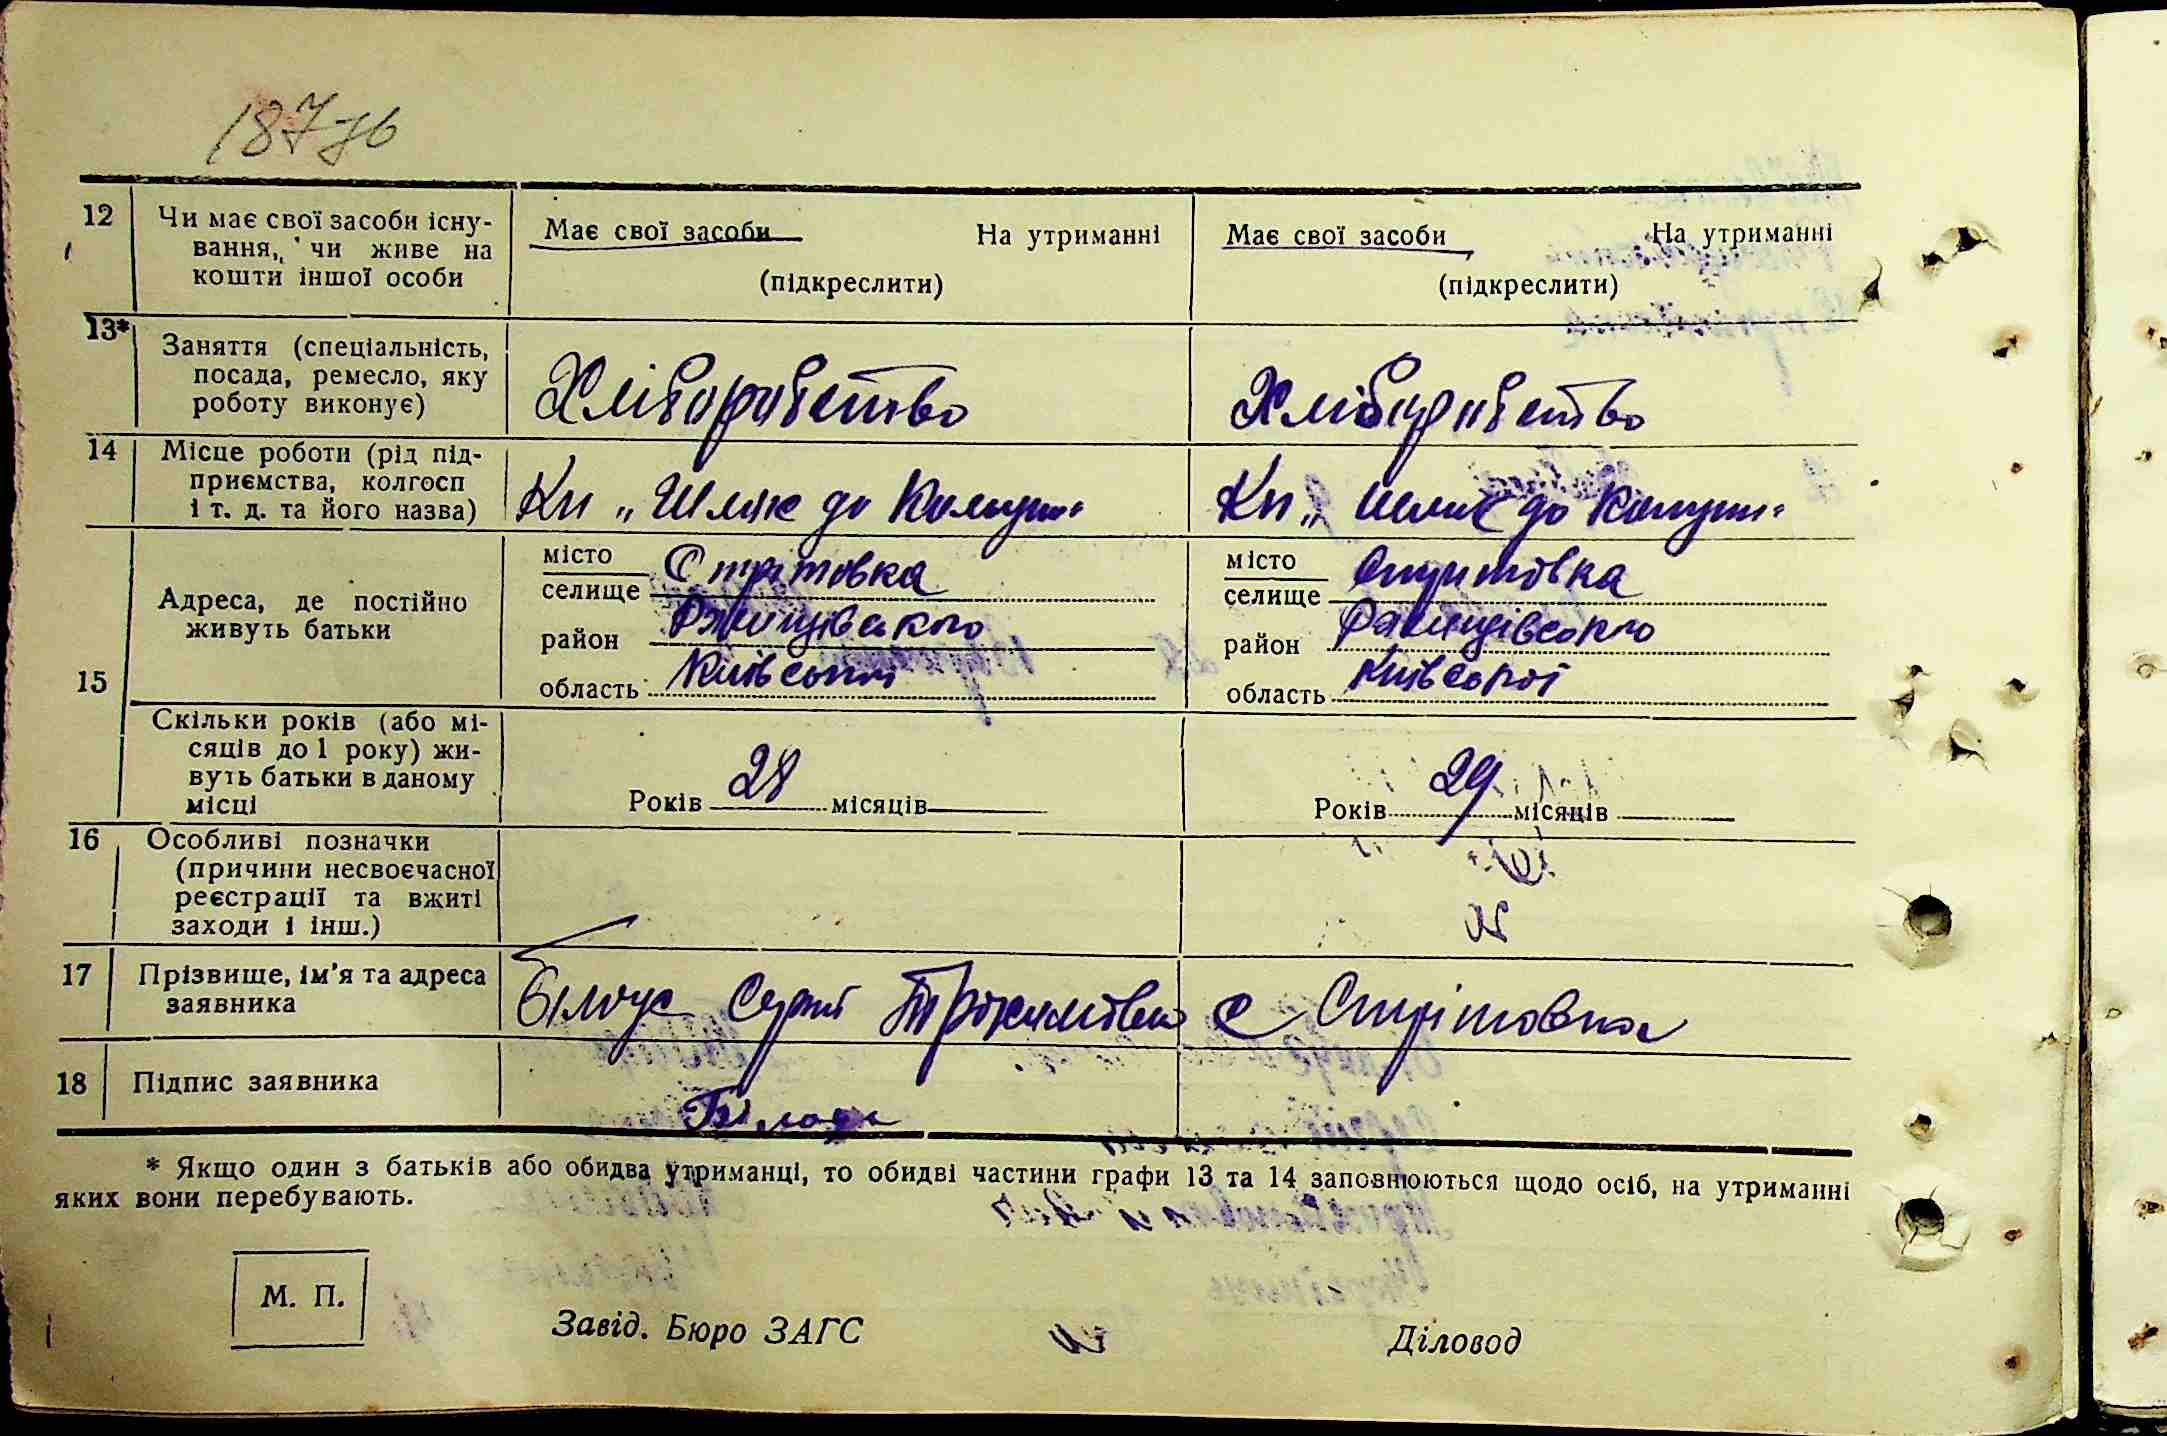 187зв
12 Чи має свої засоби існу-
вання, чи живе на
кошти іншої особи
Має свої засоби На утриманні
(підкреслити)
Має свої засоби На утриманні
(підкреслити)
13* Заняття (спеціальність,
посада, ремесло, яку
роботу виконує)
Хліборобство
Хліборобство
14 Місце роботи (рід під-
приємства, колгосп
і т. д. та його назва)
Кп „Шлях до Комуни"
Кп „Шлях до Комуни"
15 Адреса, де постійно
живуть батьки
місто
селище Стрітовка
район Ржищівського
область Київської
місто
селище Стрітовка
район Ржищівського
область Київської
Скільки років (або мі-
сяців до 1 року) жи-
вуть батьки в даному
місці
Років 28 місяців
Років 29 місяців
16 Особливі позначки
(причини несвоєчасної
реєстрації та вжиті
заходи і інш.)
17 Прізвище, ім'я та адреса
заявника
Білоус Сергій Трохимович с Стрітовка
18 Підпис заявника
Білоус
* Якщо один з батьків або обидва утриманці, то обидві частини графи 13 та 14 заповнюються щодо осіб, на утриманні
яких вони перебувають.
М. П.
Завід. Бюро ЗАГС
Діловод